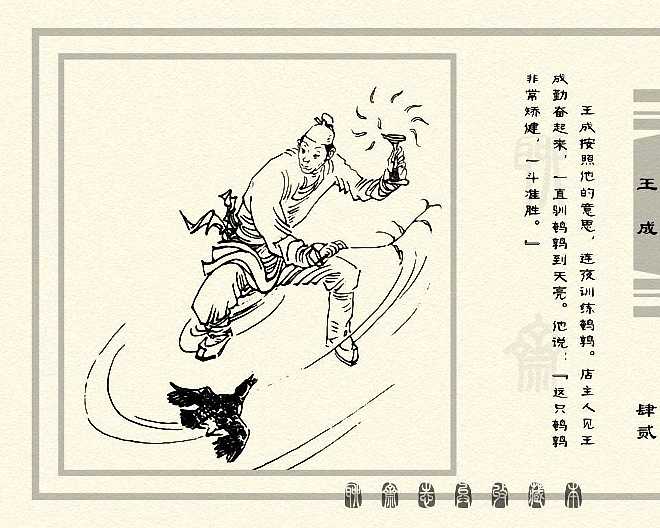 王成
肆贰
王成按照他的意思，连夜训练鹌鹑。店主人见王
成勤奋起来，一直驯鹌鹑到天亮。他说：「这只鹌鹑
非常矫健，一斗准胜。」
聊齋志異收藏本